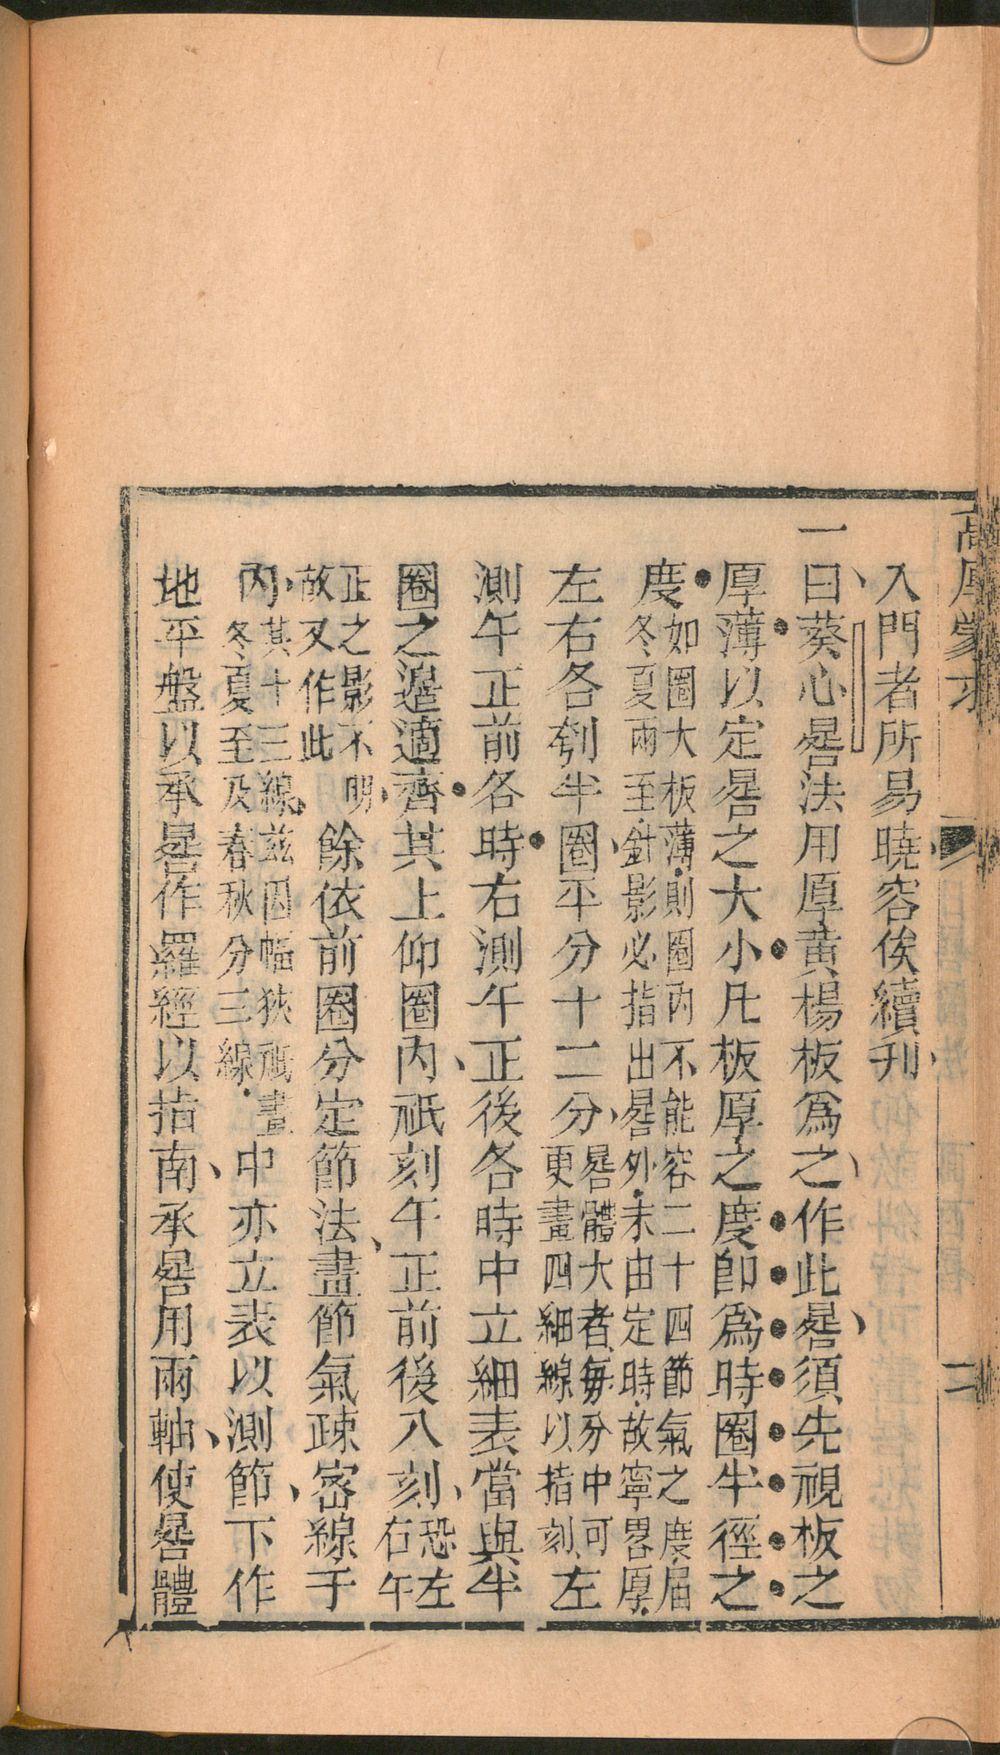 高厚蒙求
二
入門者所易曉容俟續刋
一曰葵心晷法用厚黃楊板爲之作此晷須先視板之
厚薄以定晷之大小凡板厚之度卽爲時圈半徑之
度如圈大板薄則圈內不能容二十四節氣之度屆
冬夏兩至針影必指出晷外未由定時故寧畧厚
左右各刳半圈平分十二分晷體大者每分中可
更畫四細線以指刻左
測午正前各時右測午正後各時中立細表當與半
圈之邊適齊其上仰圈內祇刻午正前後八刻恐左
右午
正之影不明
故又作此餘依前圈分定節法畫節氣疎密線于
內其十三線茲因幅狹祇畫
冬夏至及春秋分三線中亦立表以測節下作
地平盤以承晷作羅經以指南承晷用兩軸使晷體